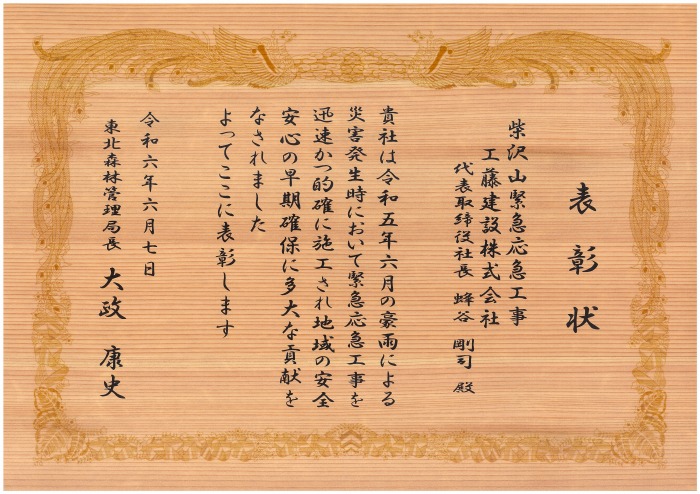 表彰状
柴沢山緊急応急工事
工藤建設株式会社
代表取締役社長 蜂谷 剛司 殿
貴社は令和五年六月の豪雨による
災害発生時において緊急応急工事を
迅速かつ的確に施工され地域の安全
安心の早期確保に多大な貢献を
なされました
よってここに表彰します
令和六年六月七日
東北森林管理局長 大政 康史